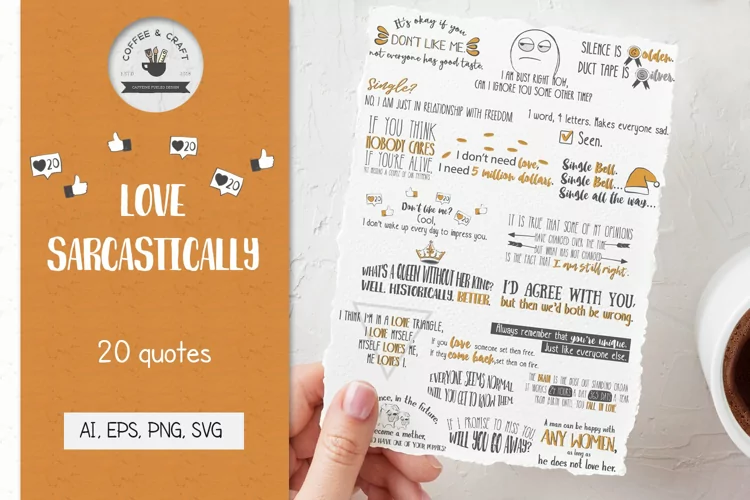 COFFEE & CRAFT
CAFFEINE FUELED DESIGN
20
20
20
LOVE
SARCASTICALLY
20 quotes
AI, EPS, PNG, SVG
It's okay if you
DON'T LIKE ME
not everyone has good taste.
I AM BUSY RIGHT NOW,
CAN I IGNORE YOU SOME OTHER TIME?
SILENCE IS Golden.
DUCT TAPE IS Silver.
Single?
NO, I AM JUST IN RELATIONSHIP WITH FREEDOM
1 word, 4 letters. Makes everyone sad.
Seen.
IF YOU THINK
NOBODY CARES
IF YOU'RE ALIVE,
TRY MISSING A COUPLE OF CAR PAYMENTS
I don't need love,
I need 5 million dollars.
Single Bell,
Single Bell...
Single all the way...
20
20
Don't like me?
Cool,
I don't wake up every day to impress you.
IT IS TRUE THAT SOME OF MY OPINIONS
HAVE CHANGED OVER THE TIME
BUT WHAT HAS NOT CHANGED
IS THE FACT THAT I am still right.
WHAT'S A QUEEN WITHOUT HER KING?
WELL, HISTORICALLY, BETTER.
I'D AGREE WITH YOU,
but then we'd both be wrong.
I THINK I'M IN A LOVE TRIANGLE,
I LOVE MYSELF,
MYSELF LOVES ME,
ME LOVES I.
Always remember that you're unique.
Just like everyone else.
If you love someone set them free.
If they come back, set them on fire.
EVERYONE SEEMS NORMAL
UNTIL YOU GET TO KNOW THEM.
THE BRAIN IS THE MOST OUT STANDING ORGAN
IT WORKS 24 HOURS A DAY 365 DAYS A YEAR
FROM BIRTH UNTIL YOU FALL IN LOVE.
in the future,
become a mother,
HAVE ONE OF YOUR PUPPIES?
IF I PROMISE TO MISS YOU,
WILL YOU GO AWAY?
A man can be happy with
ANY WOMEN,
as long as
he does not love her.